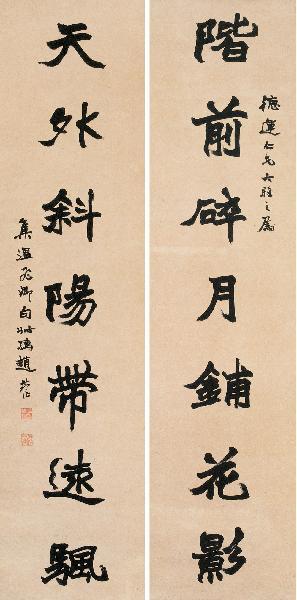 階前碎月鋪花影
仁兄大雅之屬
天外斜陽帶遠颿
集溫飛卿句趙